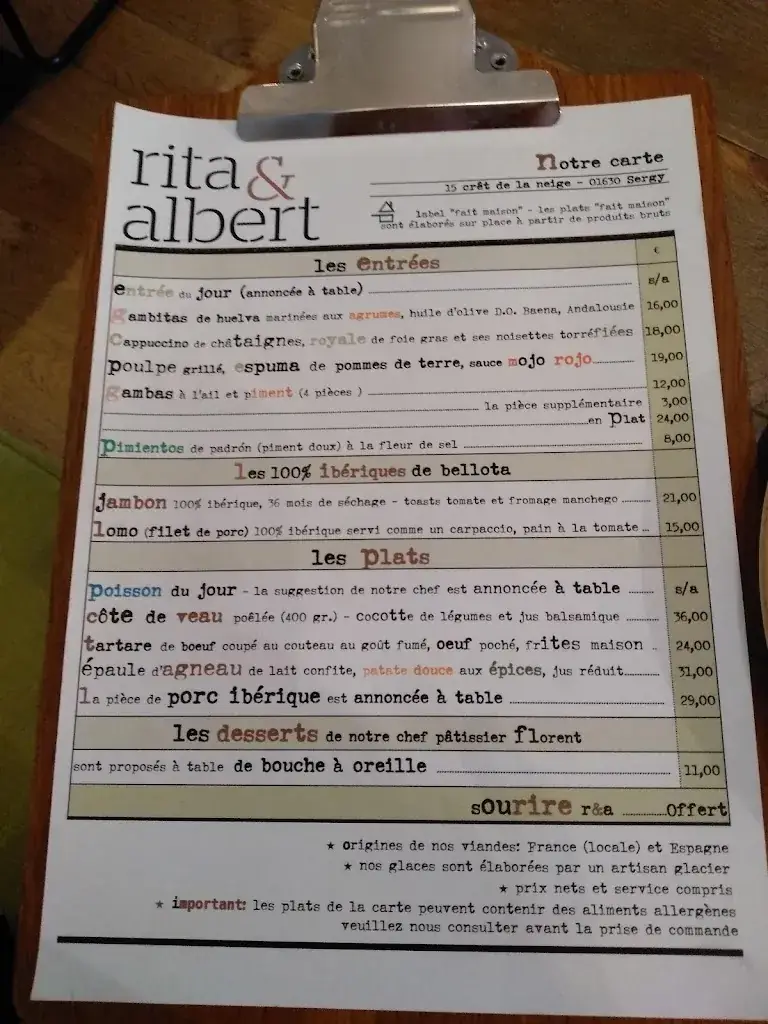 rita &
albert
Notre carte
15 crêt de la neige - 01630 Sergy
label "fait maison" - les plats "fait maison"
sont élaborés sur place à partir de produits bruts
les entrées €
entrée du jour (annoncée à table) s/a
gambitas de huelva marinées aux agrumes, huile d'olive D.O. Baena, Andalousie 16,00
cappuccino de châtaignes, royale de foie gras et ses noisettes torréfiées 18,00
poulpe grillé, espuma de pommes de terre, sauce mojo rojo 19,00
gambas à l'ail et piment (4 pièces ) 12,00
la pièce supplémentaire 3,00
en plat 24,00
pimientos de padrón (piment doux) à la fleur de sel 8,00
les 100% ibériques de bellota
jambon 100% ibérique, 36 mois de séchage - toasts tomate et fromage manchego 21,00
lomo (filet de porc) 100% ibérique servi comme un carpaccio, pain à la tomate 15,00
les plats
poisson du jour - la suggestion de notre chef est annoncée à table s/a
côte de veau poêlée (400 gr.) - cocotte de légumes et jus balsamique 36,00
tartare de boeuf coupé au couteau au goût fumé, oeuf poché, frites maison 24,00
épaule d'agneau de lait confite, patate douce aux épices, jus réduit 31,00
la pièce de porc ibérique est annoncée à table 29,00
les desserts de notre chef pâtissier florent
sont proposés à table de bouche à oreille 11,00
sourire r&a Offert
★ origines de nos viandes: France (locale) et Espagne
★ nos glaces sont élaborées par un artisan glacier
★ prix nets et service compris
★ important: les plats de la carte peuvent contenir des aliments allergènes
veuillez nous consulter avant la prise de commande